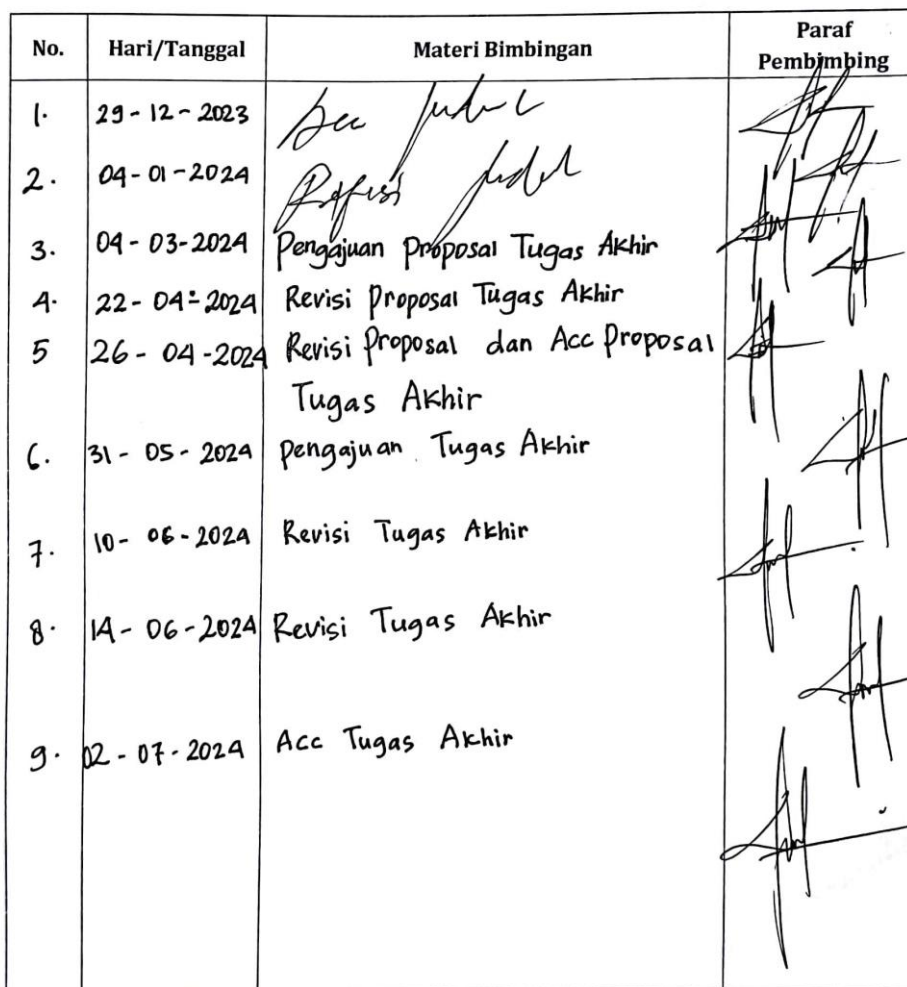 No. Hari/Tanggal Materi Bimbingan Paraf Pembimbing
1. 29-12-2023 Acc Judul
2. 04-01-2024 Judul
3. 04-03-2024 Pengajuan Proposal Tugas Akhir
4. 22-04-2024 Revisi Proposal Tugas Akhir
5 26-04-2024 Revisi Proposal dan Acc Proposal
Tugas Akhir
6. 31-05-2024 Pengajuan Tugas Akhir
7. 10-06-2024 Revisi Tugas Akhir
8. 14-06-2024 Revisi Tugas Akhir
9. 02-07-2024 Acc Tugas Akhir